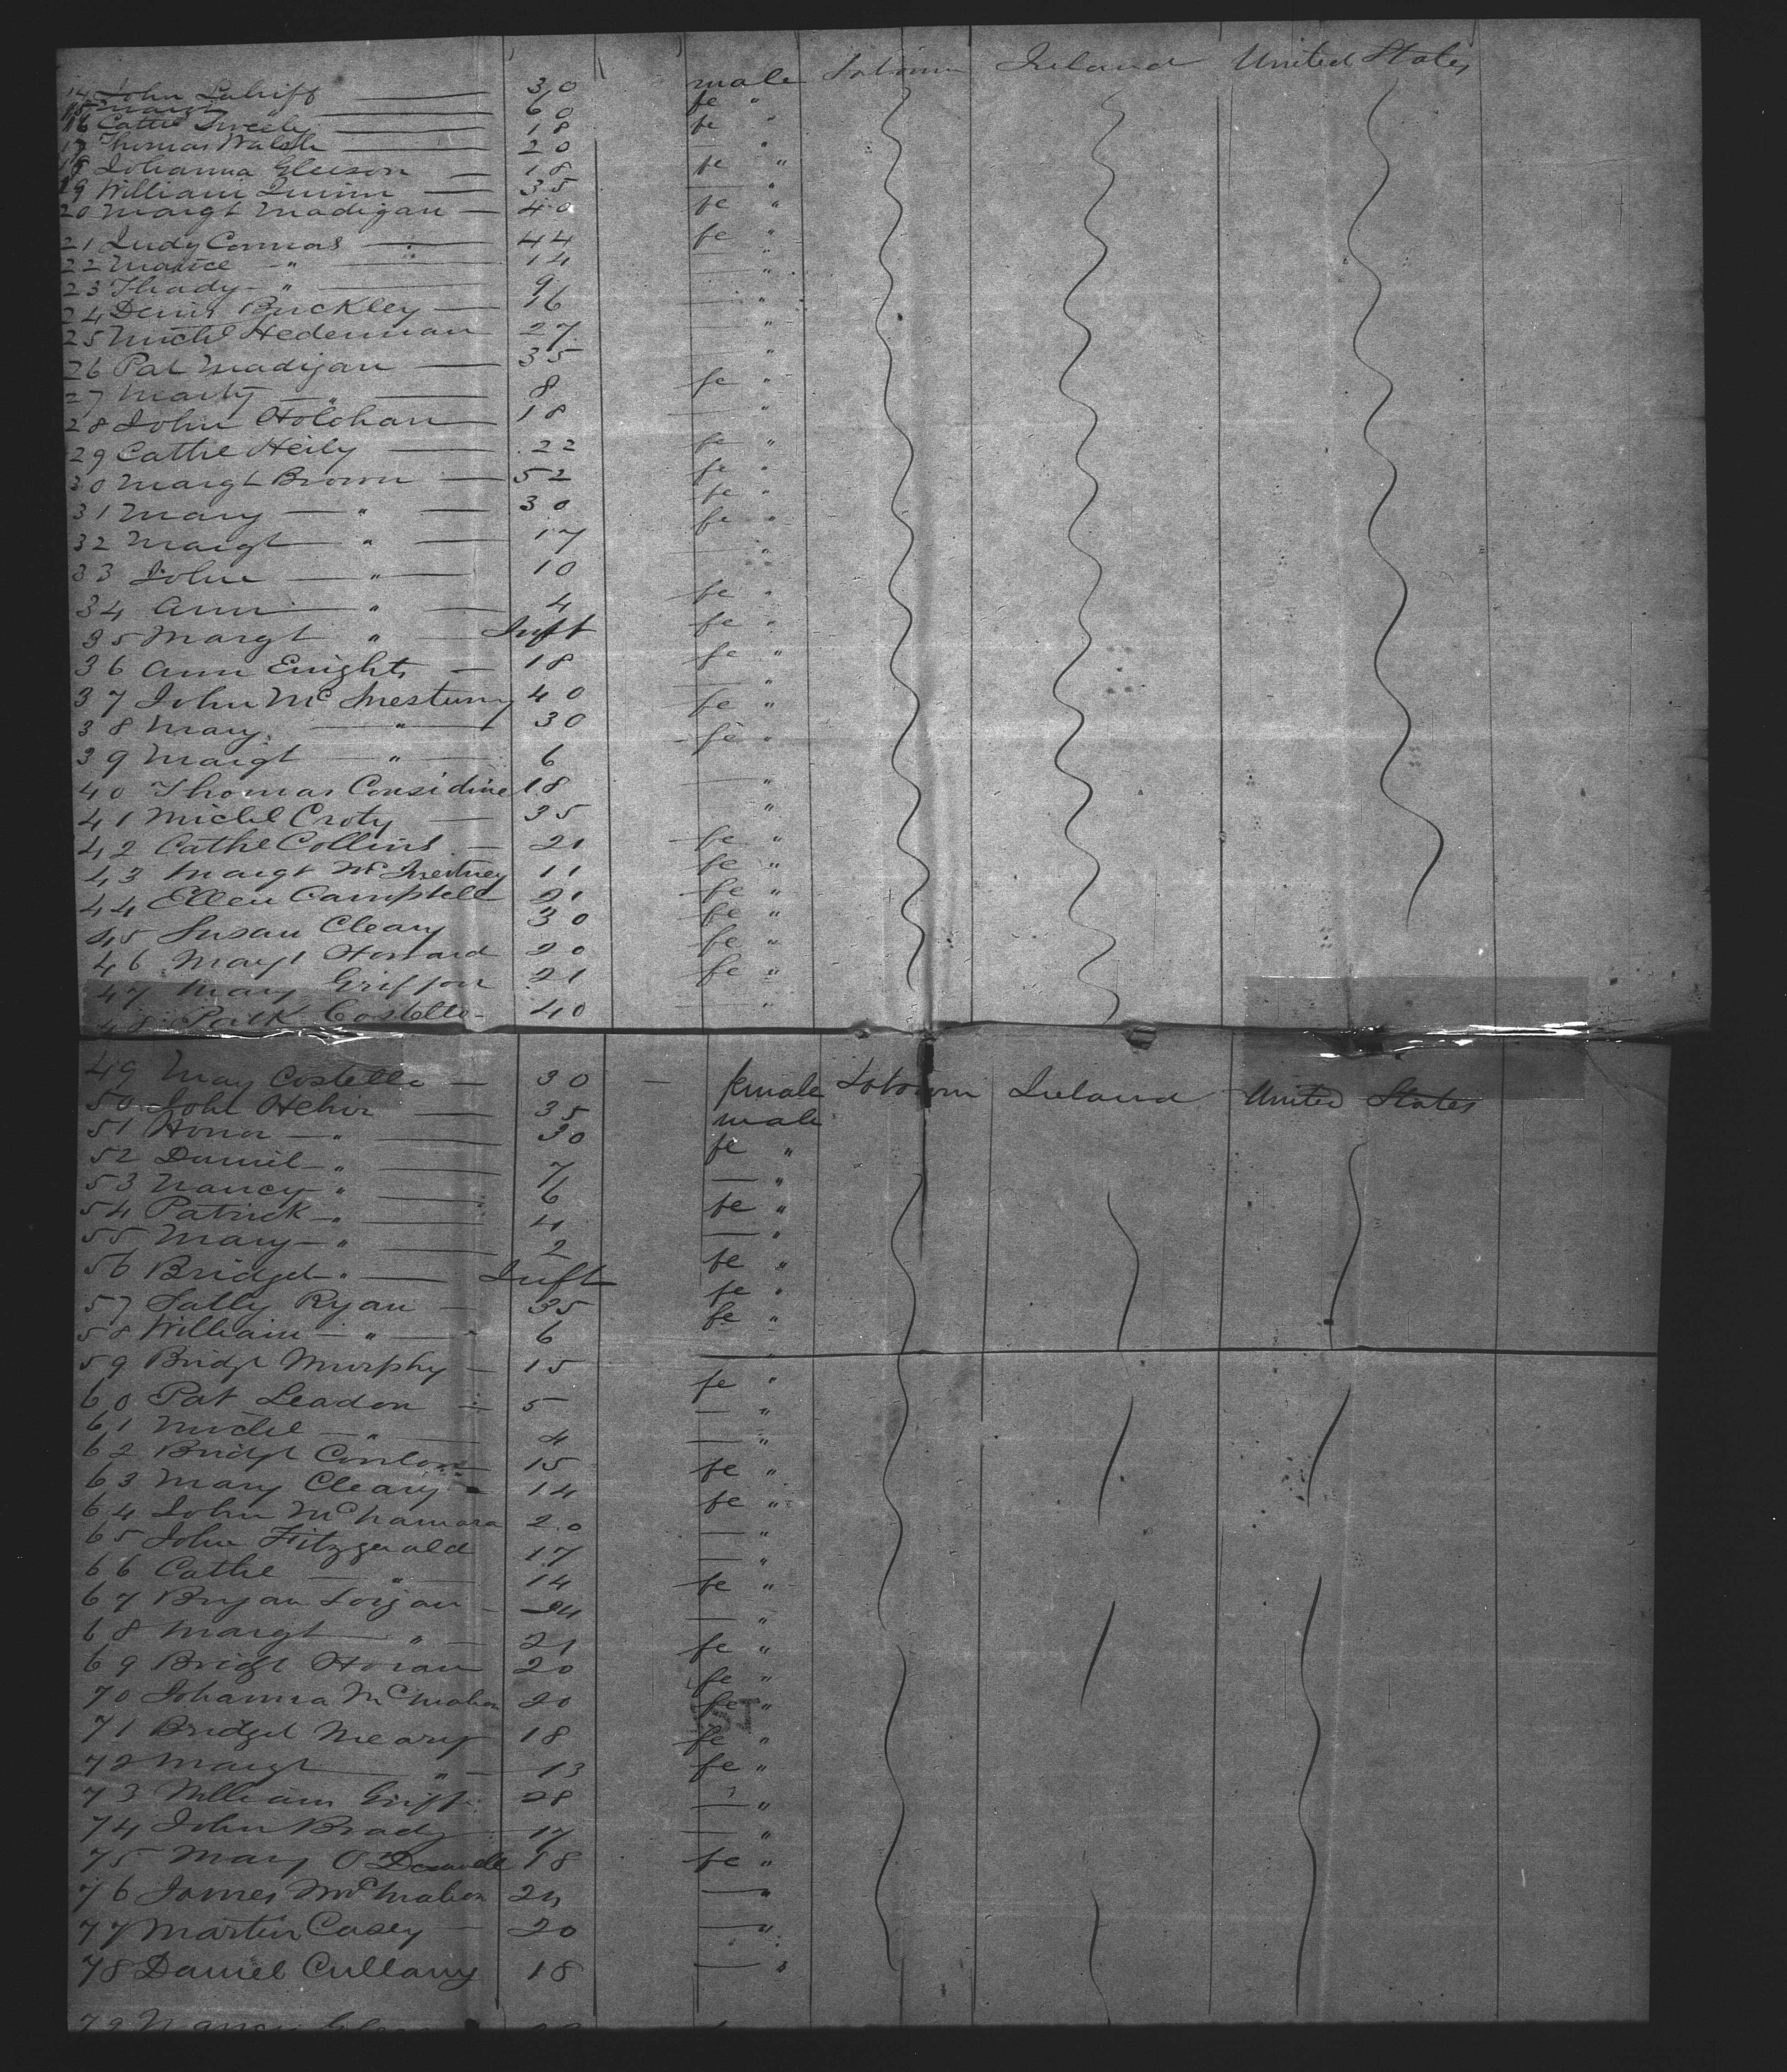 14 John Lahiff — 30 male Labourer Ireland United States
15 Margt " — 60 fe "
16 Cathe — 18 fe "
17 Thomas Walsh — 20 — "
18 Johanna Gleeson — 18 fe "
19 William Quinn — 35 — "
20 Margt Madigan — 40 fe "
21 Judy Connors — 44 fe "
22 — " — 14 — "
23 Thady — " — 9 — "
24 Denis Buckley — 16 — "
25 Michl Hedernan 27 — "
26 Pat Madigan — 35 — "
27 — " — 8 fe "
28 John Holohan — 18 — "
29 Cathe Heily — 22 fe "
30 Margt Brown — 52 fe "
31 Mary — " — 30 fe "
32 Margt — " — 17 fe "
33 John — " — 10 — "
34 Ann — " — 4 fe "
35 Margt " — Inft fe "
36 Ann Enright — 18 fe "
37 John Mc 40 — "
38 Mary — " — 30 fe "
39 Margt — " — 6 fe "
40 Thomas Considine 18 — "
41 Michl Croty — 35 — "
42 Cathe Collins — 21 fe "
43 Margt Mc 11 fe "
44 Ellen Campbell 21 fe "
45 Susan Cleary 30 fe "
46 Margt Howard 20 fe "
47 Mary Griffon 21 fe "
48 Patk Costello - 40 — "
49 May Costello — 30 — female Labourer Ireland United States
50 John Hehir — 35 male
51 Honor — " — 30 fe "
52 Daniel — " — 7 — "
53 Nancy " — 6 fe "
54 Patrick — " — 4 — "
55 Mary — " — 2 fe "
56 Bridget " — Inft fe "
57 Sally Ryan — 35 fe "
58 William — " — 6 "
59 Bridgt Murphy — 15 fe "
60 Pat Leadon — 5 — "
61 Michl — " — 4 — "
62 Bridgt Conlon 15 fe "
63 Mary Cleary — 14 fe "
64 John McNamara 20 — "
65 John Fitzgerald 17 — "
66 Cathe — " — 14 fe "
67 Bryan — 24 — "
68 Margt — " — 21 fe "
69 Bridgt Horan 20 fe "
70 Johanna McMahon 20 fe "
71 Bridget Neary 18 fe "
72 Margt — " — 13 fe "
73 William 28 — "
74 John Brady 17 — "
75 Mary O'Donnell 18 fe "
76 James McMahon 24 — "
77 Martin Casey — 20 — "
78 Daniel Cullany 18 — "
79 Nancy